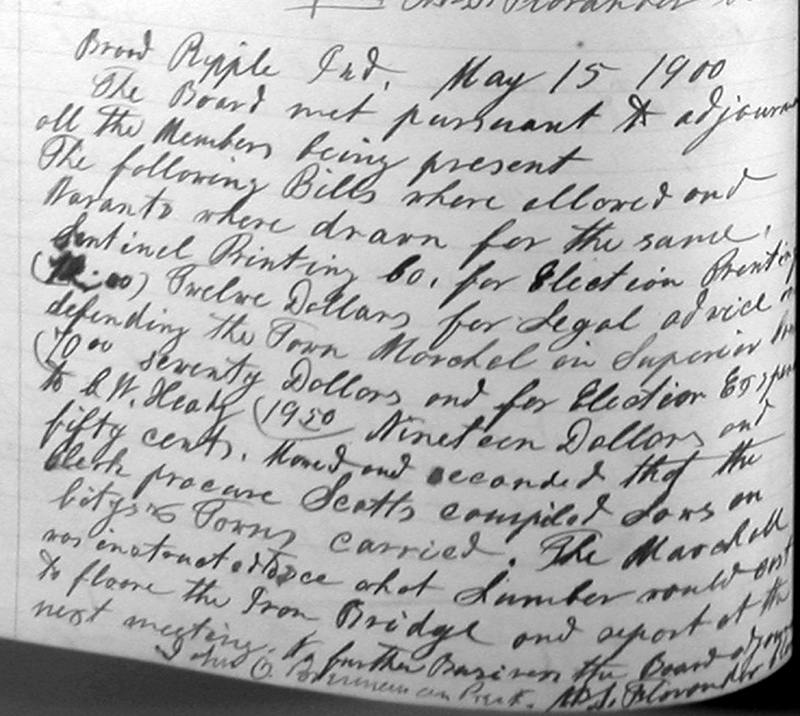 Broad Ripple Ind. May 15 1900
The Board met pursuant to adjourn
all the Members being present
The following Bills where allowed and
Warants where drawn for the same.
Sentinel Printing Co. for Election Printing
(12.00) Twelve Dollars for Legal advice in
defending the Town Marchal in Superior
(70 00 seventy Dollars and for Election Exspen
to C.W. Heady (19 50 Nineteen Dollars and
fifty cents. Moved and seconded that the
Clerk procure Scotts compiled Laws on
Citys & Towns carried. The Marchall
was instructed to see what Lumber would cost
to floore the Iron Bridge and report at the
next meeting. No further Business the Board adjour
John O. Prest.